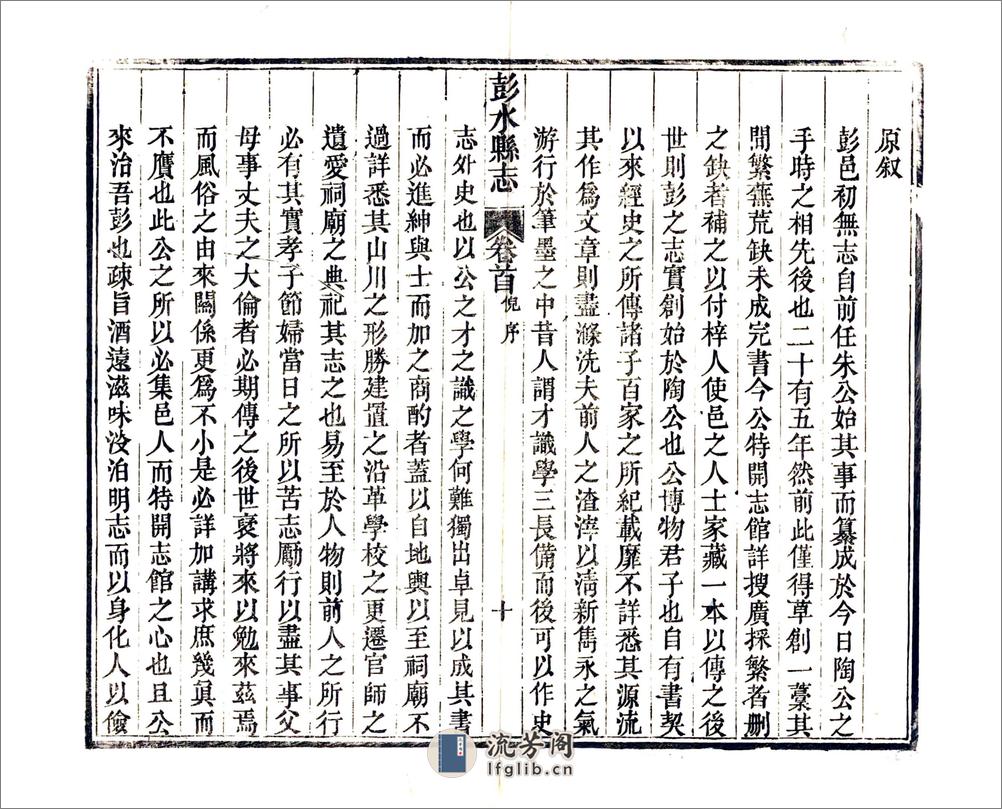 原叙
彭邑初無志自前任朱公始其事而纂成於今日陶公之
手時之相先後也二十有五年然前此僅得草創一藁其
間繁蕪荒缺未成完書今公特開志館詳搜廣採繁者刪
之缺者補之以付梓人使邑之人士家藏一本以傳之後
世則彭之志實創始於陶公也公博物君子也自有書契
以來經史之所傳諸子百家之所紀載靡不詳悉其源流
其作爲文章則盡滌洗夫前人之渣滓以淸新雋永之氣
游行於筆墨之中昔人謂才識學三長備而後可以作史
彭水縣志 卷首 倪序 十
志外史也以公之才之識之學何難獨出卓見以成其書
而必進紳與士而加之商酌者蓋以自地輿以至祠廟不
過詳悉其山川之形勝建置之沿革學校之更遷官師之
遺愛祠廟之典祀其志之也易至於人物則前人之所行
必有其實孝子節婦當日之所以苦志勵行以盡其事父
母事丈夫之大倫者必期傳之後世褒將來以勉來茲焉
而風俗之由來關係更爲不小是必詳加講求庶幾眞而
不贋也此公之所以必集邑人而特開志館之心也且公
來治吾彭也疎旨酒遠滋味淡泊明志而以身化人以儉
流芳阁
lfglib.cn